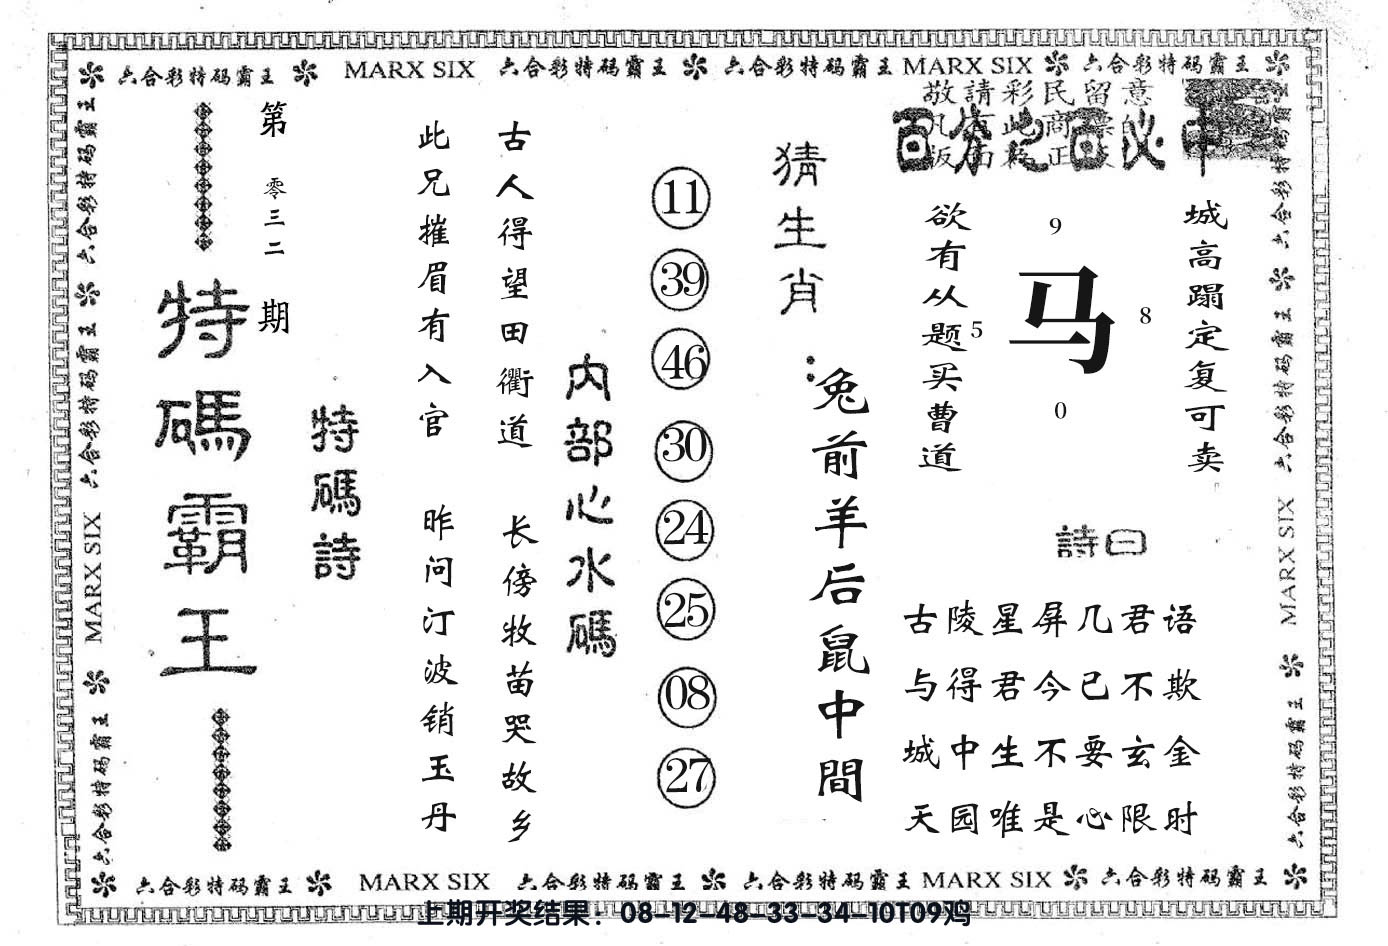 六合彩特码霸王 MARX SIX 六合彩特码霸王 六合彩特码霸王 MARX SIX 六合彩特码霸王
敬請彩民留意
百分之百必中
城高蹋定复可卖
欲有从题买曹道
9
马
5
8
0
詩曰
古陵星屏几君语
与得君今已不欺
城中生不要玄金
天园唯是心限时
猜生肖：
兔前羊后鼠中間
11
39
46
30
24
25
08
27
内部心水碼
古人得望田衢道 长傍牧苗哭故乡
此兄摧眉有入官 昨问汀波销玉丹
特碼詩
第零三二期
特碼霸王
六合彩特码霸王 六合彩特码霸王 MARX SIX 六合彩特码霸王
六合彩特码霸王 六合彩特码霸王 MARX SIX 六合彩特码霸王
六合彩特码霸王 MARX SIX 六合彩特码霸王 六合彩特码霸王 MARX SIX 六合彩特码霸王
上期开奖结果：08-12-48-33-34-10T09鸡